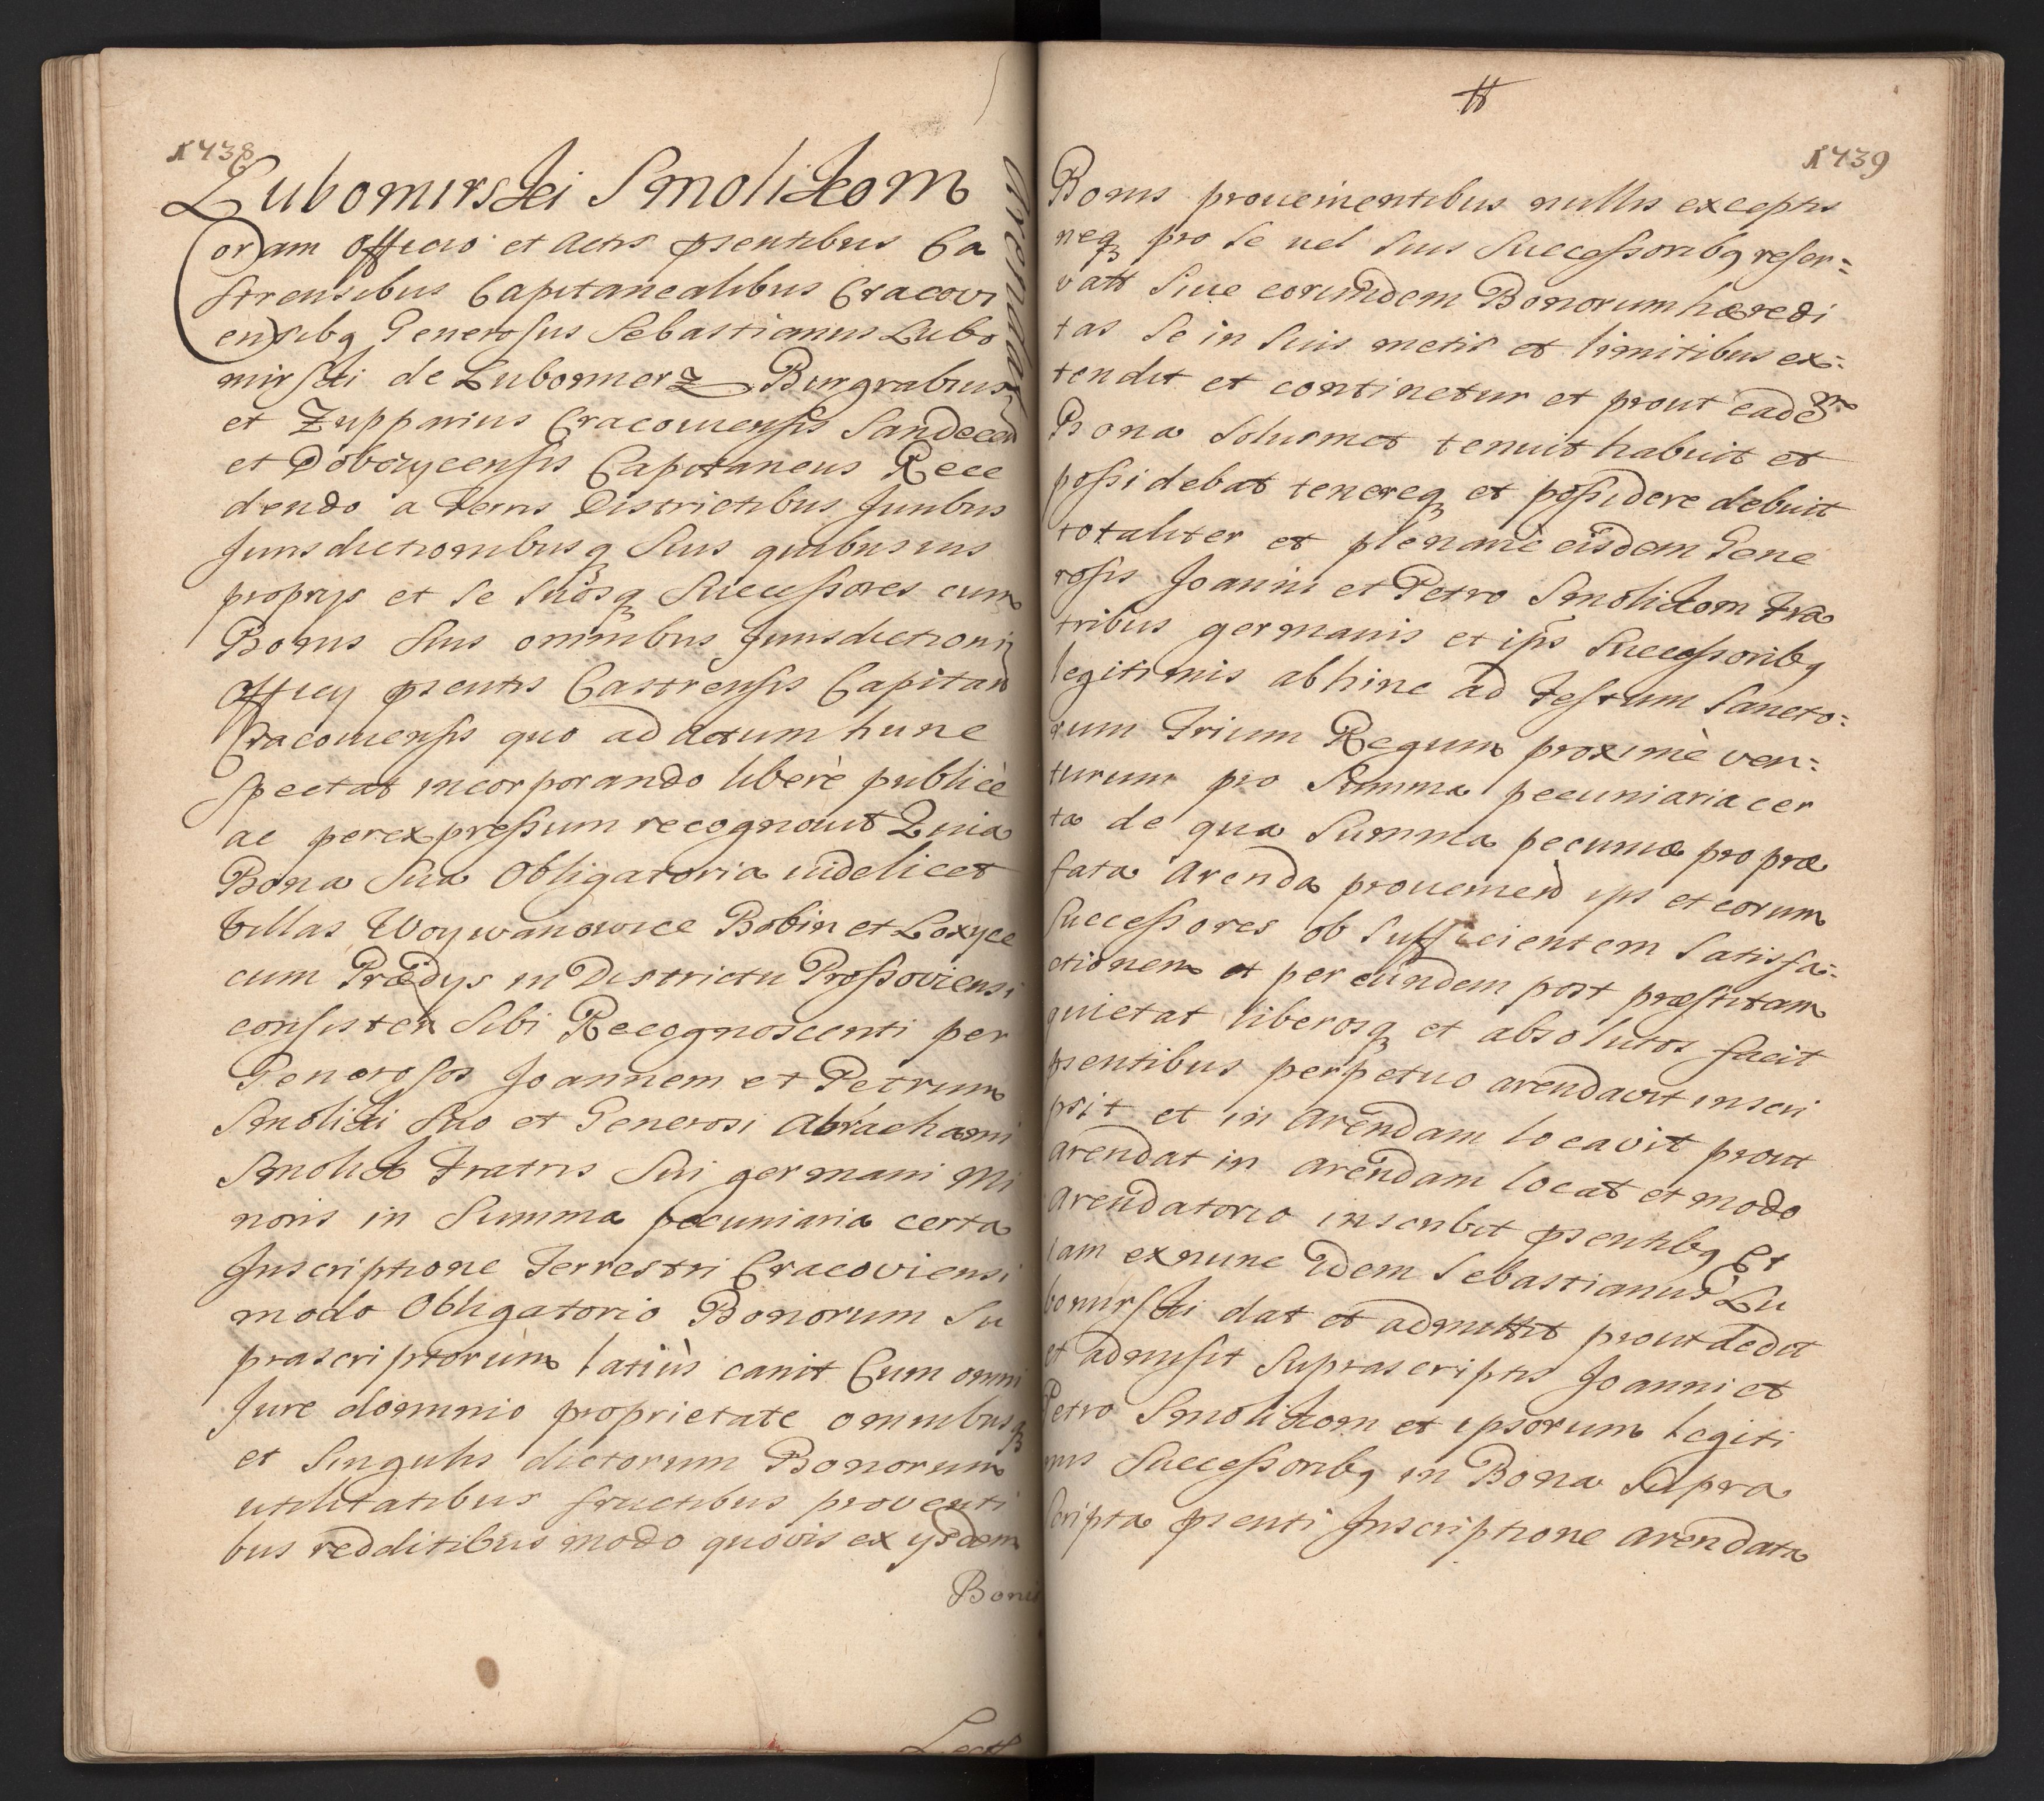 1438
Lubomirski Smolikom
Coram Officio et Actis psentibus Ca
strensibus Capitanealibus Cracovi
ensibq Generosus Sebastianus Lubo
mirski de Lubomierz Burgrabius
et Zupparius Cracouiensis Sandecen
et Dobczycensis Capitaneus Rece
dendo a Terris Districtibus Juribus
Jurisdictionibusq Suis quibusuis
proprys et se suosq Successores cum
Bonis suis omnibus Jurisdictioni
Officy psentis Castrensis Capitan
Cracouiensis quo ad actum hunc
spectat incorporando liberè publicè
ac per expressum recognouit Quia
Bona sua Obligatoria uidelicet
Villas Woywanowice Bobin et Loxyce
cum Prædys in Districtu Prossoviensi
consisten Sibi Recognoscenti per
Generosos Joannem et Petrum
Smoliki suo et Generosi Abrahami
Smolik Fratris Sui germani Mi
noris in Summa pecuniaria certa
Inscriptione Terrestri Cracoviensi
modo Obligatorio Bonorum Su
prascriptorum latiùs canit Cum omni
Jure dominio proprietate omnibusq
et Singulis dictorum Bonorum
utilitatibus fructibus proventi
bus redditibus modo quovis ex ysdem
Bonis
Arendat
1439
Bonis prouenientibus nullis exceptis
neq pro se uel suis Successoribq reser=
vatt siue eorundem Bonorum hæredi
tas se in suis metis et limitibus ex=
tendit et continetur et prout eadem
Bona Solusmet tenuit habuit et
possidebat tenereq et possidere debuit
totaliter et plenariè eisdem Gene
rosis Joanni et Petro Smolikom Fra
tribus germanis et ips Successoribq
legitimis abhinc ad Festum Sancto=
rum Trium Regum proximè ven=
turum pro Summa pecuniaria cer
ta de qua Summa pecuniæ pro præ
fata Arenda prouenien ips et eorum
Successores ob sufficientem Satisfa=
ctionem et per eundem post præstitam
quietat liberosq et absolutos facit
psentibus perpetuo arendavit inscri
psit et in Arendam locavit prout
arendat in arendam locat et modo
Arendatorio inscribit psentibq Et
iam exnunc Idem Sebastianus Lu
bomirski dat et admittit prout dedit
et admisit Suprascriptis Joanni et
Petro Smolikom et ipsorum legiti
mis Successoribq in Bona Supra
scripta psenti Inscriptione arendata